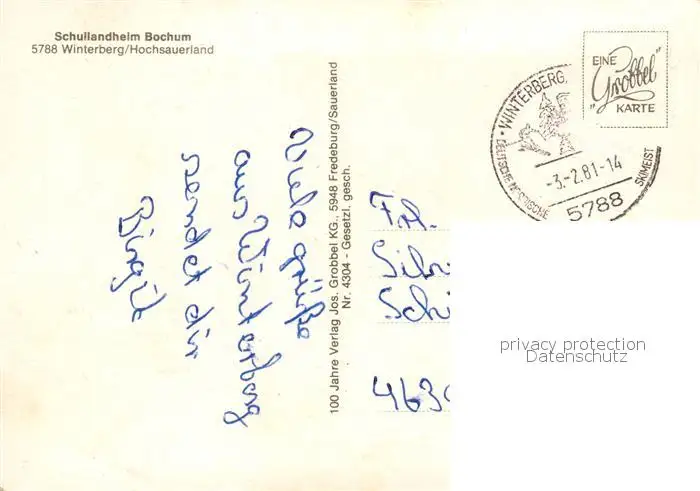 Schullandheim Bochum
5788 Winterberg/Hochsauerland
EINE
"Grobbel"
KARTE
WINTERBERG,
DEUTSCHE
SKIMEIST
-3.-2.81-14
5788
100 Jahre Verlag Jos. Grobbel KG., 5948 Fredeburg/Sauerland
Nr. 4304 - Gesetzl. gesch.
Viele grüße
aus Winterberg
sendet dir
Birgit
Frl.
Silv
Schi
4630
privacy protection
Datenschutz